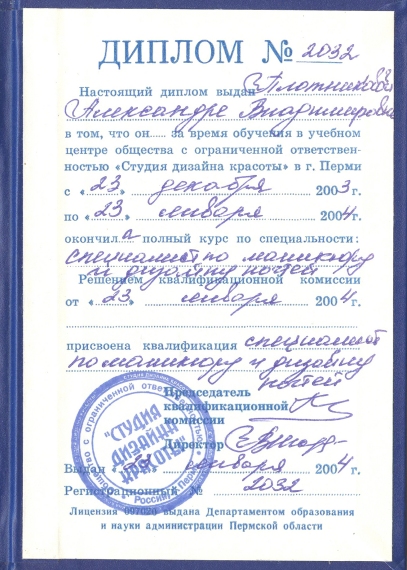 ДИПЛОМ № 2032
Настоящий диплом выдан Плотниковой
Александре Владимировне
в том, что он..... за время обучения в учебном
центре общества с ограниченной ответствен-
ностью «Студия дизайна красоты» в г. Перми
с «23» декабря 2003 г.
по «23» января 2004 г.
окончил а полный курс по специальности:
специалист по маникюру
и дизайну ногтей
Решением квалификационной комиссии
от «23» января 2004 г.
присвоена квалификация специалист
по маникюру и дизайну
ногтей
Председатель
квалификационной
комиссии
Директор
"СТУДИЯ
ДИЗАЙНА
КРАСОТЫ"
Выдан января 2004 г.
Регистрационный № 2032
Лицензия 097020 выдана Департаментом образования
и науки администрации Пермской области